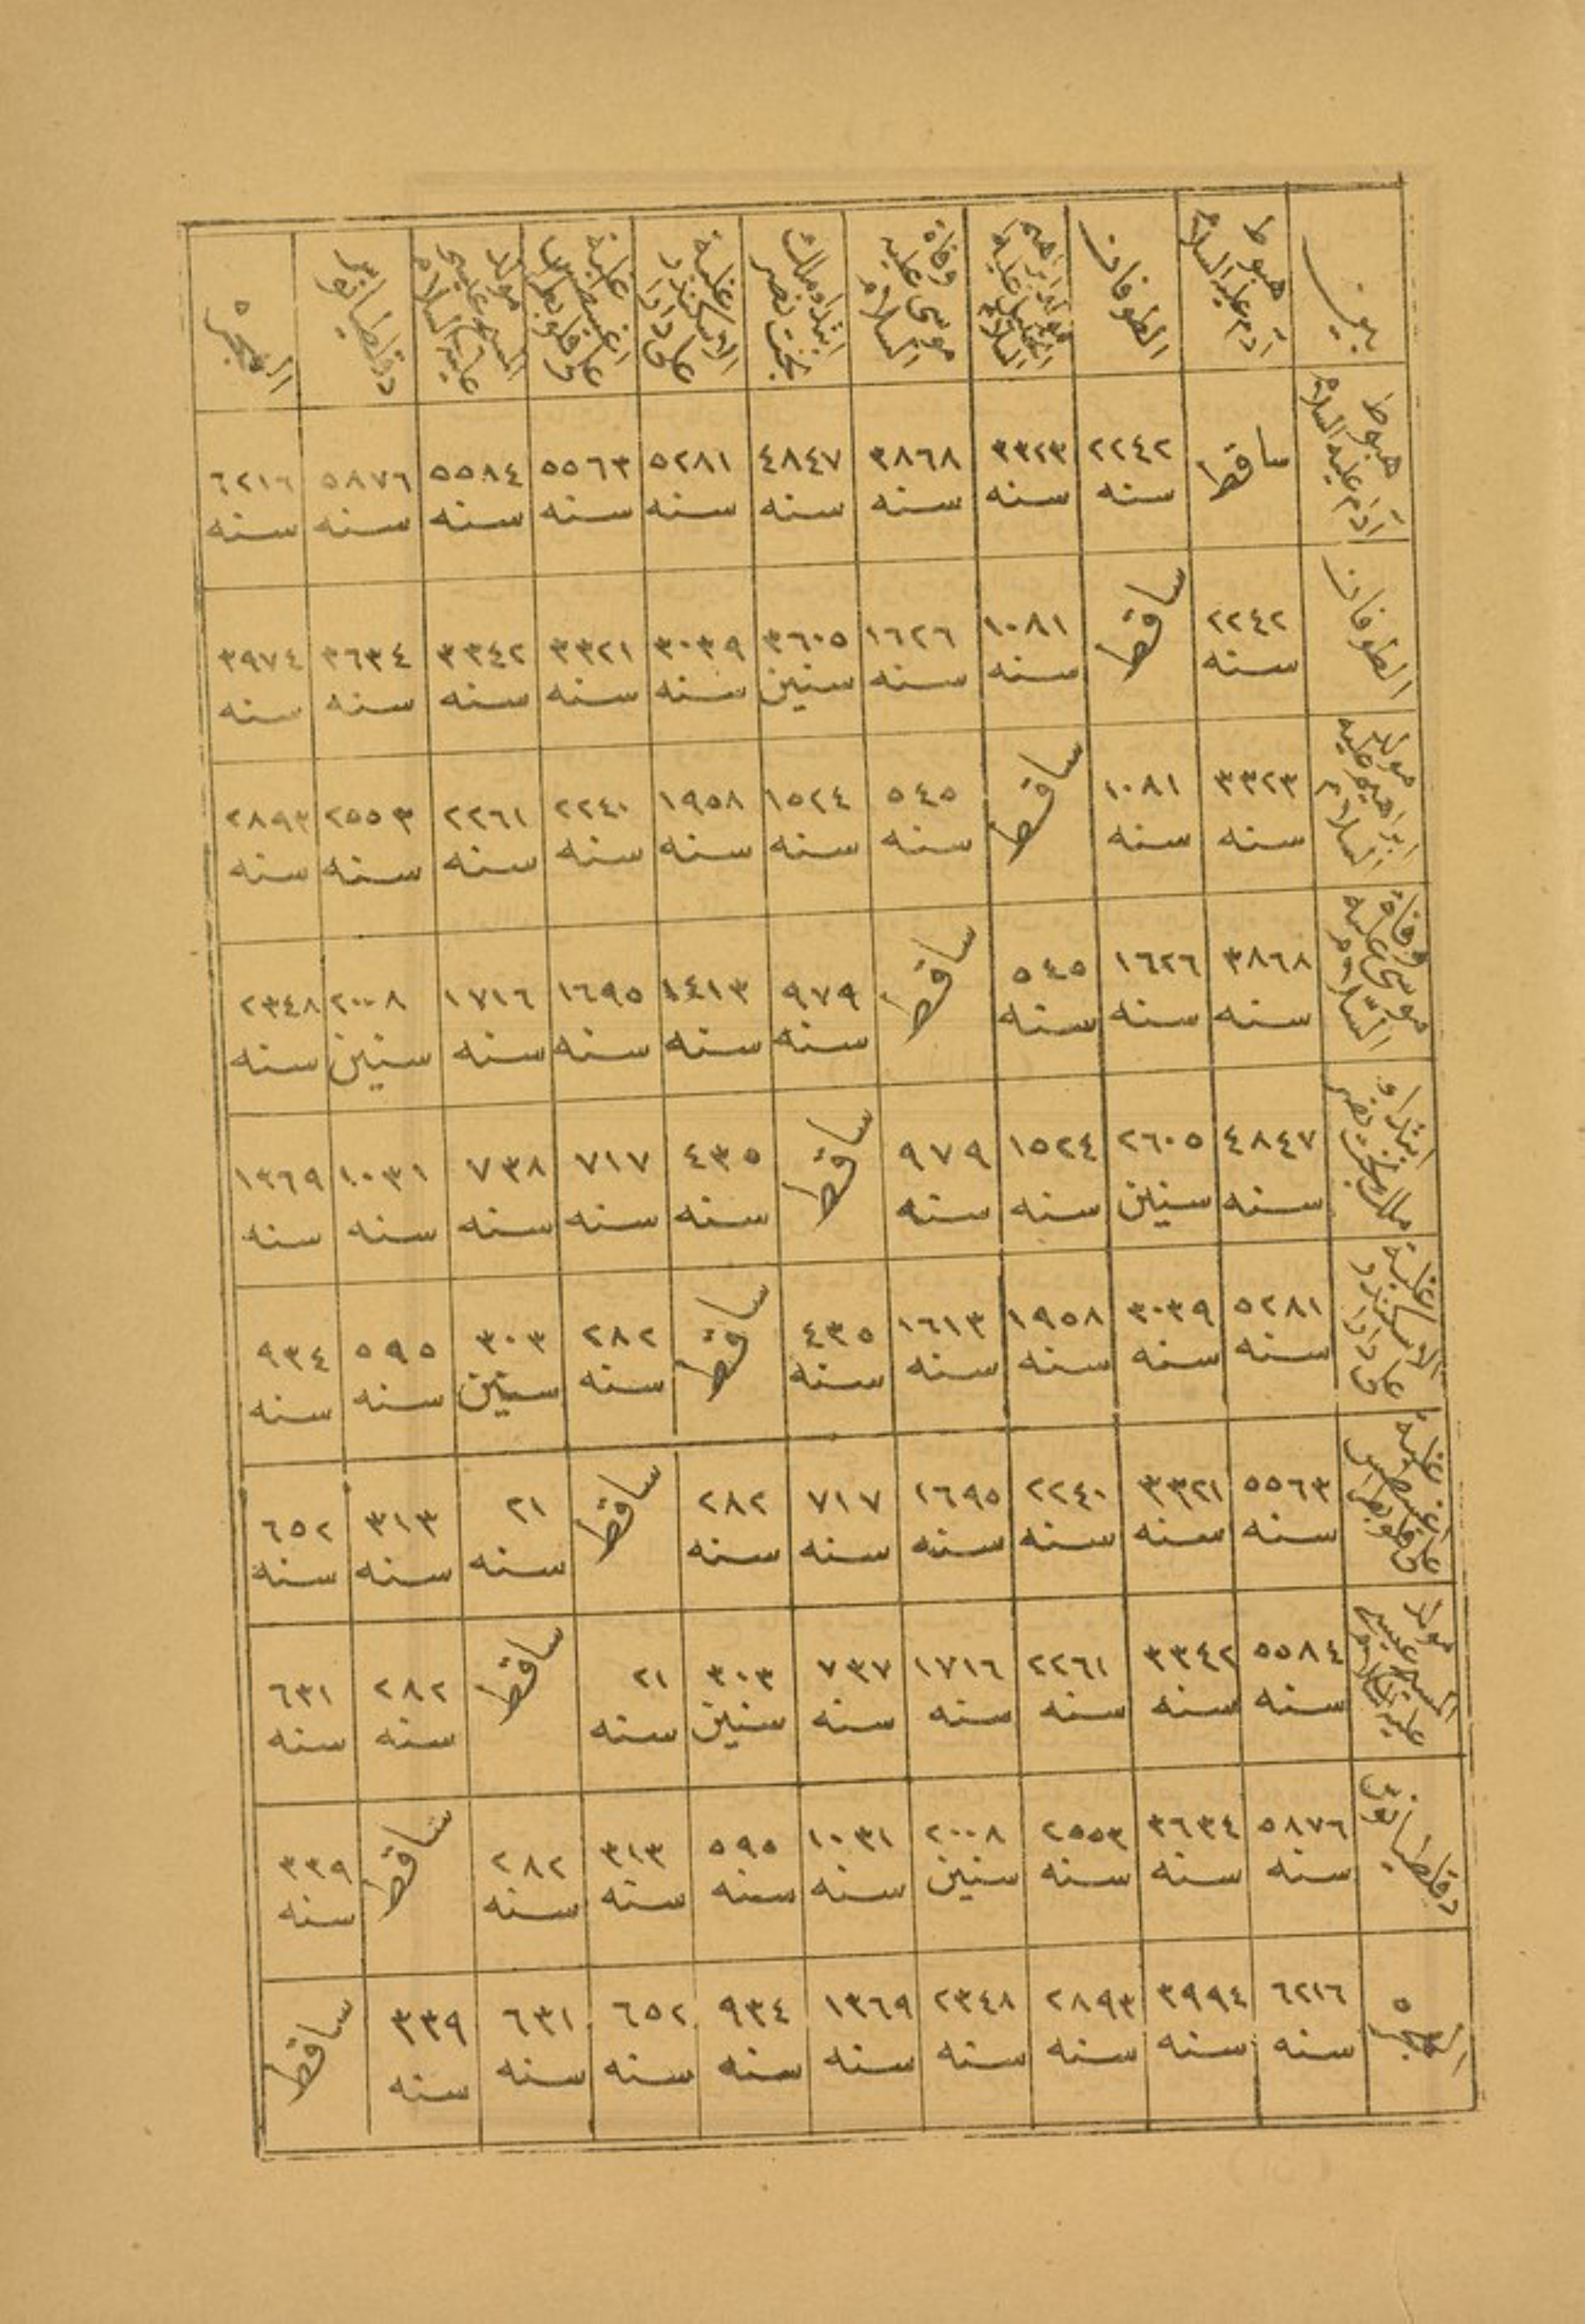 بين | هبوط آدم عليه السلام | الطوفان | مولد ابراهيم الخليل عليه السلام | وفاة موسى عليه السلام | ابتداء ملك بخت نصر | غلبة الاسكندر على دارا | غلبة اغسطس على قلوبطرا | مولد المسيح عيسى عليه السلام | دقلطيانوس | الهجره
هبوط آدم عليه السلام | ساقط | ٢٢٤٢ سنه | ٣٣٢٣ سنه | ٣٨٦٨ سنه | ٤٨٤٧ سنه | ٥٢٨١ سنه | ٥٥٦٣ سنه | ٥٥٨٤ سنه | ٥٨٧٦ سنه | ٦٢١٦ سنه
الطوفان | ٢٢٤٢ سنه | ساقط | ١٠٨١ سنه | ١٦٢٦ سنه | ٣٦٠٥ سنين | ٣٠٣٩ سنه | ٣٣٢١ سنه | ٣٣٤٢ سنه | ٣٦٣٤ سنه | ٣٩٧٤ سنه
مولد ابراهيم عليه السلام | ٣٣٢٣ سنه | ١٠٨١ سنه | ساقط | ٥٤٥ سنه | ١٥٢٤ سنه | ١٩٥٨ سنه | ٢٢٤٠ سنه | ٢٢٦١ سنه | ٢٥٥٣ سنه | ٢٨٩٣ سنه
وفاة موسى عليه السلام | ٣٨٦٨ سنه | ١٦٢٦ سنه | ٥٤٥ سنه | ساقط | ٩٧٩ سنه | ١٤١٣ سنه | ١٦٩٥ سنه | ١٧١٦ سنه | ٢٠٠٨ سنين | ٢٣٤٨ سنه
ابتداء ملك بخت نصر | ٤٨٤٧ سنه | ٢٦٠٥ سنين | ١٥٢٤ سنه | ٩٧٩ سنه | ساقط | ٤٣٥ سنه | ٧١٧ سنه | ٧٣٨ سنه | ١٠٣١ سنه | ١٣٦٩ سنه
غلبة الاسكندر على دارا | ٥٢٨١ سنه | ٣٠٣٩ سنه | ١٩٥٨ سنه | ١٦١٣ سنه | ٤٣٥ سنه | ساقط | ٢٨٢ سنه | ٣٠٣ سنين | ٥٩٥ سنه | ٩٣٤ سنه
غلبة اغسطس على قلوبطرا | ٥٥٦٣ سنه | ٣٣٢١ سنه | ٢٢٤٠ سنه | ١٦٩٥ سنه | ٧١٧ سنه | ٢٨٢ سنه | ساقط | ٢١ سنه | ٣١٣ سنه | ٦٥٢ سنه
مولد المسيح عيسى عليه السلام | ٥٥٨٤ سنه | ٣٣٤٢ سنه | ٢٢٦١ سنه | ١٧١٦ سنه | ٧٣٧ سنه | ٣٠٣ سنين | ٢١ سنه | ساقط | ٢٨٢ سنه | ٦٣١ سنه
دقلطيانوس | ٥٨٧٦ سنه | ٣٦٣٤ سنه | ٢٥٥٣ سنه | ٢٠٠٨ سنين | ١٠٣١ سنه | ٥٩٥ سنه | ٣١٣ سنه | ٢٨٢ سنه | ساقط | ٣٣٩ سنه
الهجره | ٦٢١٦ سنه | ٣٩٩٤ سنه | ٢٨٩٣ سنه | ٢٣٤٨ سنه | ١٣٦٩ سنه | ٩٣٤ سنه | ٦٥٢ سنه | ٦٣١ سنه | ٣٣٩ سنه | ساقط